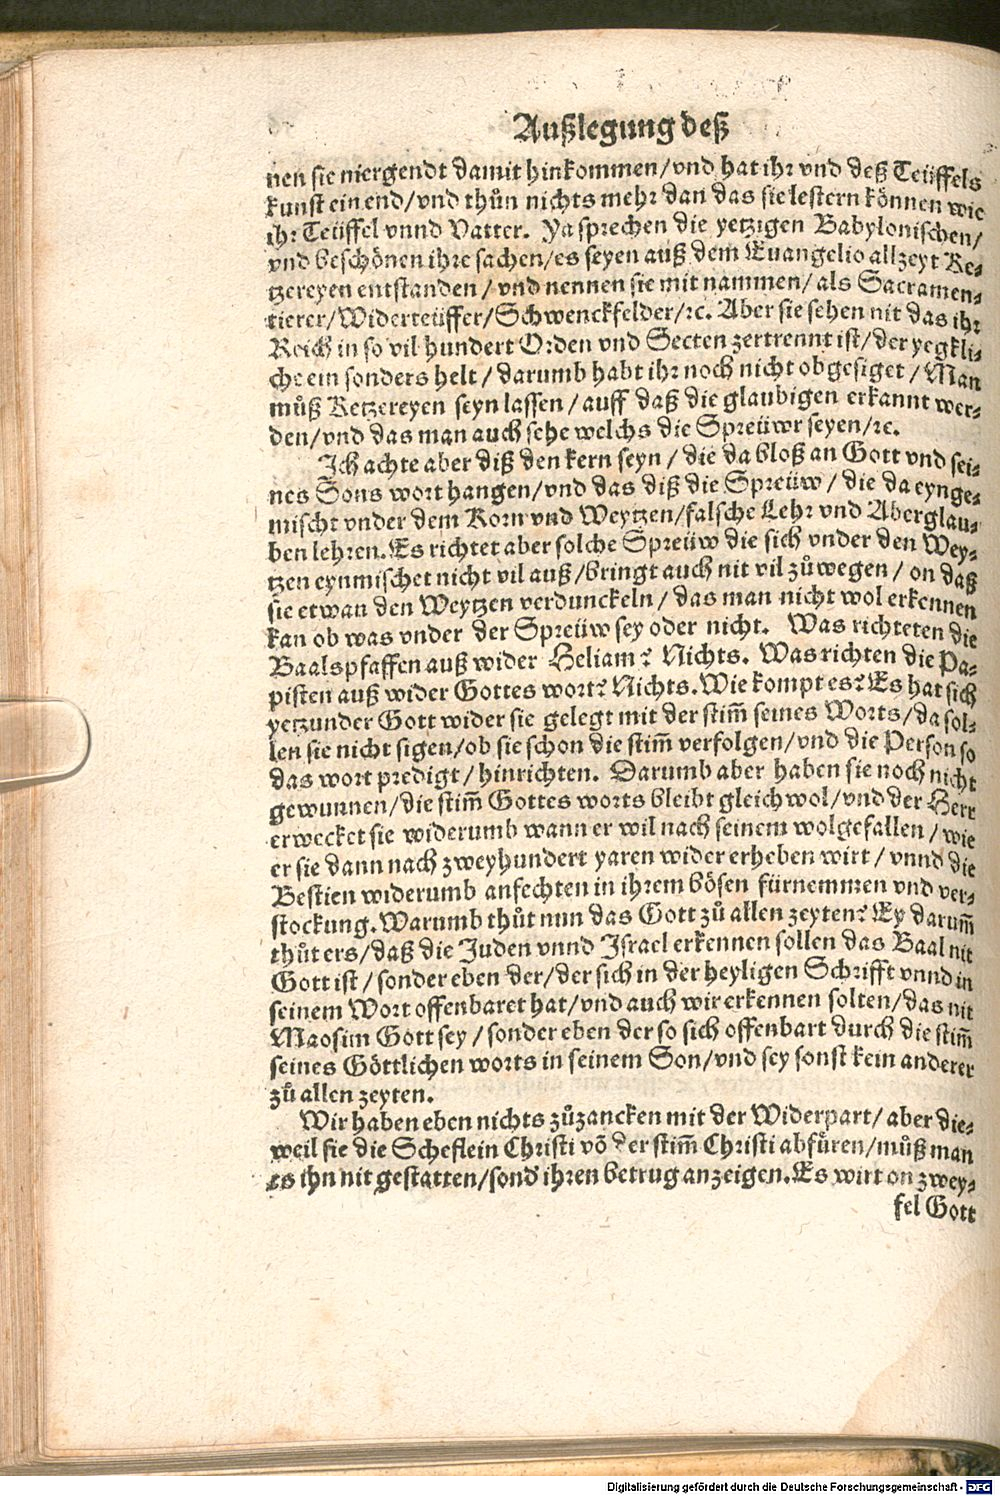 Außlegung deß
nen sie niergendt damit hinkommen/vnd hat ihr vnd deß Teüffels
kunst ein end/vnd thůn nichts mehr dan das sie lestern können wie
ihr Teüffel vnnd Vatter. Ya sprechen die yetzigen Babylonischen/
vnd beschönen ihre sachen/es seyen auß dem Euangelio allzeyt Ke⸗
tzereyen entstanden/vnd nennen sie mit nammen/als Sacramen⸗
tierer/Widerteüffer/Schwenckfelder/ꝛc. Aber sie sehen nit das ihr
Reich in so vil hundert Orden vnd Secten zertrennt ist/der yegkli⸗
che ein sonders helt/darumb habt ihr noch nicht obgesiget/Man
můß Ketzereyen seyn lassen/auff daß die glaubigen erkannt wer⸗
den/vnd das man auch sehe welchs die Spreüwr seyen/ꝛc.
Ich achte aber diß den kern seyn/die da bloß an Gott vnd sei⸗
nes Sons wort hangen/vnd das diß die Spreüw/die da eynge⸗
mischt vnder dem Korn vnd Weytzen/falsche Lehr vnd Aberglau⸗
ben lehren. Es richtet aber solche Spreüw die sich vnder den Wey⸗
tzen eynmischet nicht vil auß/bringt auch nit vil zů wegen/on daß
sie etwan den Weytzen verdunckeln/das man nicht wol erkennen
kan ob was vnder der Spreüw sey oder nicht. Was richteten die
Baalspfaffen auß wider Heliam? Nichts. Was richten die Pa⸗
pisten auß wider Gottes wort? Nichts. Wie kompt es? Es hat sich
yetzunder Gott wider sie gelegt mit der stim̃ seines Worts/da sol⸗
len sie nicht sigen/ob sie schon die stim̃ verfolgen/vnd die Person so
das wort predigt/hinrichten. Darumb aber haben sie noch nicht
gewunnen/die stim̃ Gottes worts bleibt gleichwol/vnd der Herr
erwecket sie widerumb wann er wil nach seinem wolgefallen/wie
er sie dann nach zweyhundert yaren wider erheben wirt/vnnd die
Bestien widerumb anfechten in ihrem bösen fürnemmen vnd ver⸗
stockung. Warumb thůt nun das Gott zů allen zeyten? Ey darum̃
thůt ers/daß die Juden vnnd Israel erkennen sollen das Baal nit
Gott ist/sonder eben der/der sich in der heyligen Schrifft vnnd in
seinem Wort offenbaret hat/vnd auch wir erkennen solten/das nit
Maosim Gott sey/sonder eben der so sich offenbart durch die stim̃
seines Göttlichen worts in seinem Son/vnd sey sonst kein anderer
zů allen zeyten.
Wir haben eben nichts zůzancken mit der Widerpart/aber die⸗
weil sie die Scheflein Christi võ der stim̃ Christi abfüren/můß man
es ihn nit gestatten/sond̃ ihren betrug anzeigen. Es wirt on zwey⸗
fel Gott
Digitalisierung gefördert durch die Deutsche Forschungsgemeinschaft - DFG